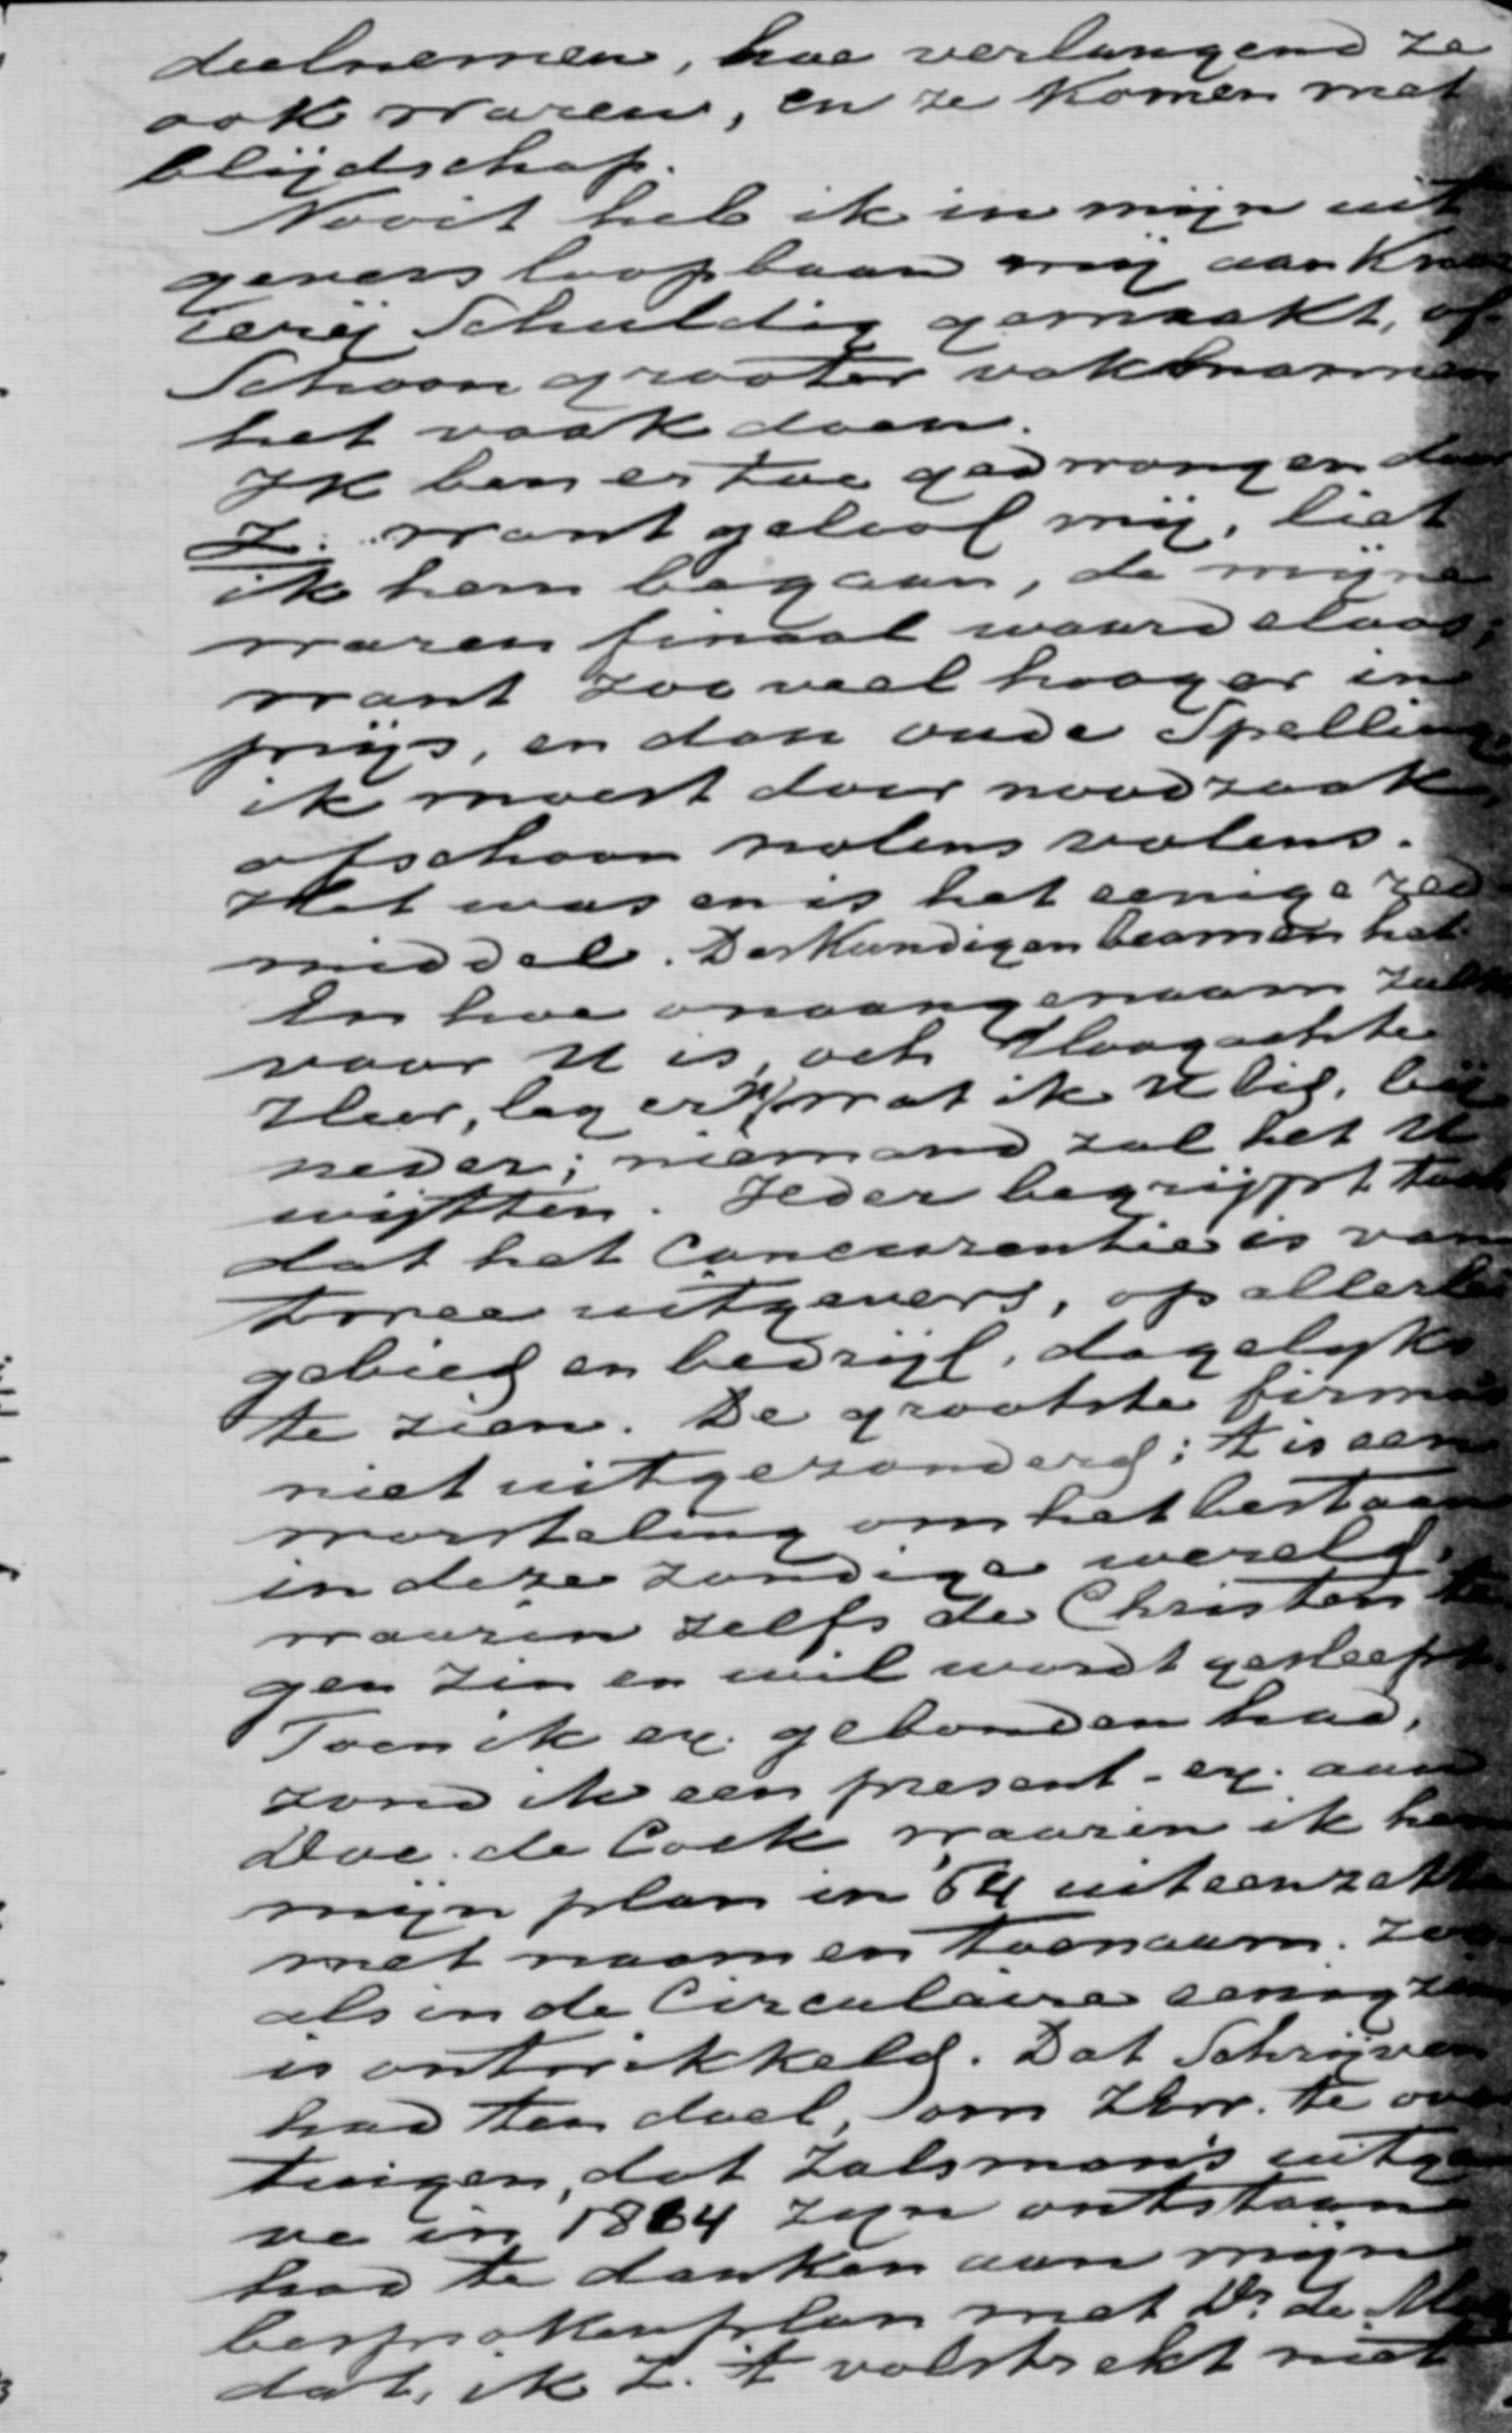 deelnemen, hoe verlangend ze
ook waren, en ze komen met
blijdschap.
Nooit heb ik in mijn uit
gevers loopbaan mij aan
terij Schuldig gemaakt, of
Schoon grooter vakmannen
het vaak doen.
Ik ben er toe gedwongen door
Z. want geloof mij, liet
ik hem begaan, de mijne
waren finaal waardeloos;
want zooveel hooger in
prijs, en dan oude Spelling
ik moest door noodzaak,
ofschoon nolens volens.
Het was en is het eenige red
middel. Deskundigen beamen het.
En hoe onaangenaam zulk
voor U is, och Hooggeachte
Heer, leg er U wat ik U bid, bij
neder; niemand zal het U
wijtten. Ieder begrijpt toch
dat het Concurentie is van
twee uitgevers, op allerlei
gebied en bedrijf, dagelyks
te zien. De grootste firma's
niet uitgezonderd; 't is een
worsteling om het bestaan
in deze zondige wereld,
waarin zelfs de Christen te
gen zin en wil wordt gesleept.
Toen ik ex. gebonden had,
zond ik een present-ex. aan
Doc. de Cock waarin ik hem
mijn plan in '64 uiteenzette
met naam en toenaam. Zoo
als in de Circulaire eenigzins
is ontwikkeld. Dat Schrijven
had ten doel, om ZEw. te over
tuigen, dat Zalsman's uitga
ve in 1864 zyn ontstaan
had te danken aan mijn
besprokenplan met Dr. de
dat, ik Z. 't volstrekt niet